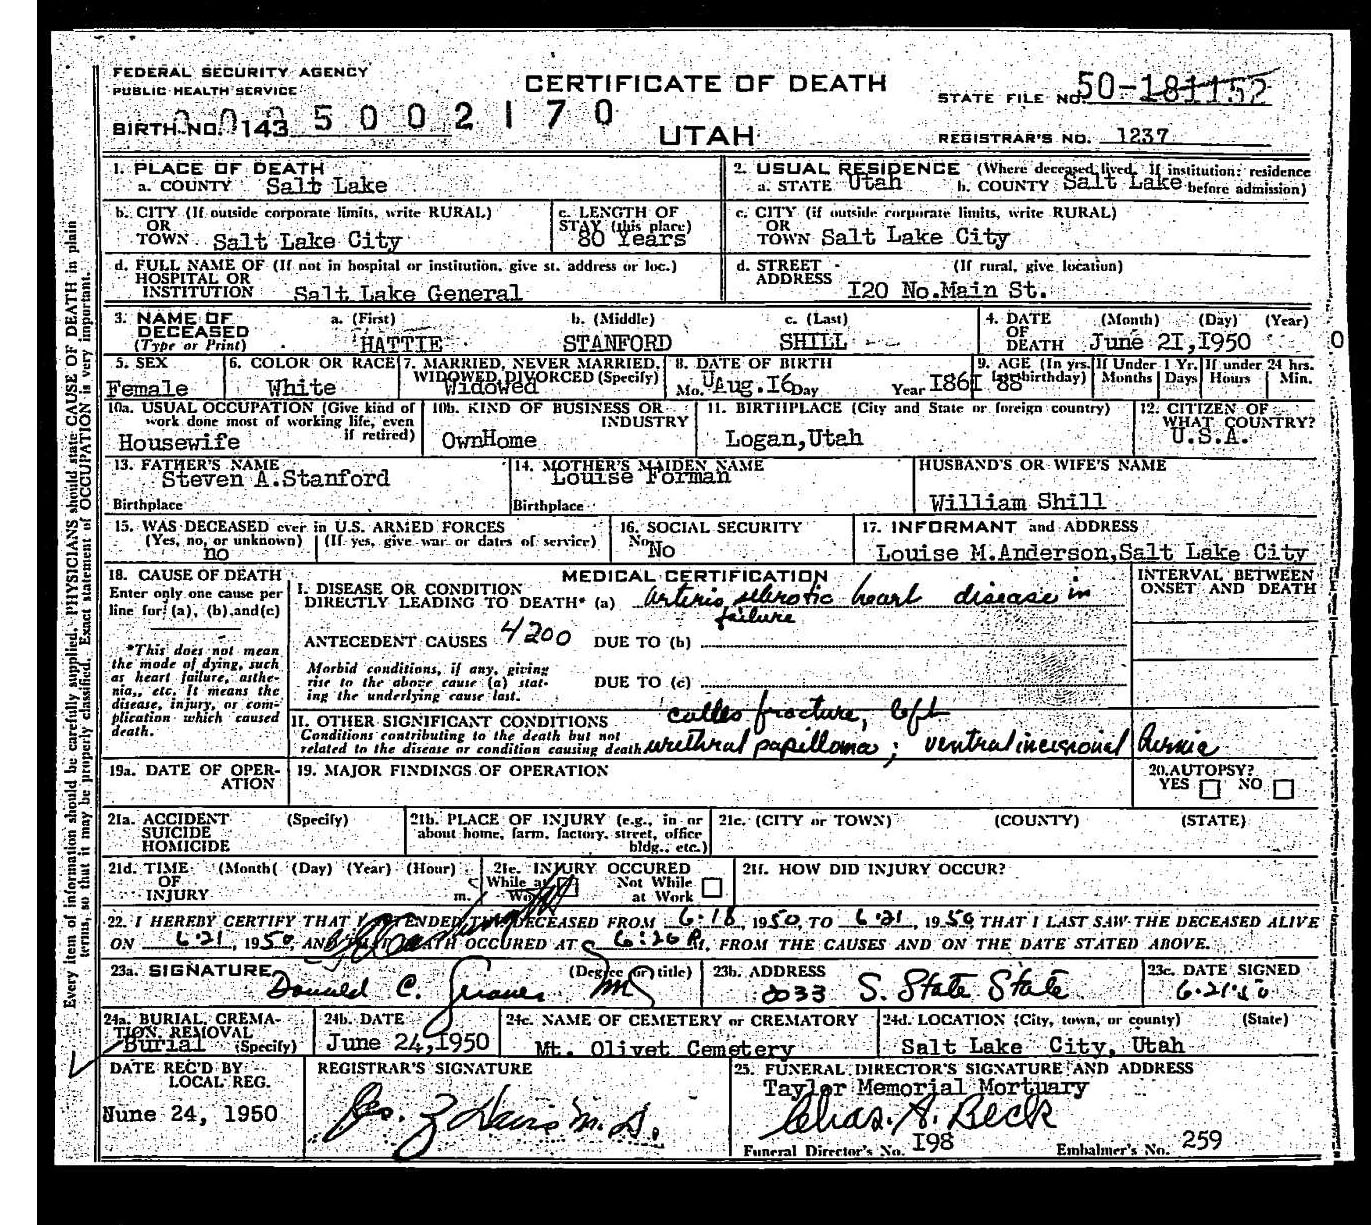 FEDERAL SECURITY AGENCY
PUBLIC HEALTH SERVICE
CERTIFICATE OF DEATH
STATE FILE NO. 50-181152
BIRTH NO. 143
5002170
UTAH
REGISTRAR'S NO. 1237
1. PLACE OF DEATH
a. COUNTY Salt Lake
2. USUAL RESIDENCE (Where deceased lived. If institution: residence before admission)
a. STATE Utah b. COUNTY Salt Lake
b. CITY (If outside corporate limits, write RURAL)
OR
TOWN Salt Lake City
c. LENGTH OF
STAY (this place)
80 Years
c. CITY (if outside corporate limits, write RURAL)
OR
TOWN Salt Lake City
d. FULL NAME OF (If not in hospital or institution, give st. address or loc.)
HOSPITAL OR
INSTITUTION Salt Lake General
d. STREET (If rural, give location)
ADDRESS I20 No.Main St.
3. NAME OF
DECEASED
(Type or Print)
a. (First) b. (Middle) c. (Last)
HATTIE STANFORD SHILL
4. DATE (Month) (Day) (Year)
OF
DEATH June 2I,I950
0
5. SEX
Female
6. COLOR OR RACE
White
7. MARRIED, NEVER MARRIED,
WIDOWED DIVORCED (Specify)
Widowed
8. DATE OF BIRTH
Mo. Aug.I6 Day Year I86I
9. AGE (In yrs. last birthday) If Under 1 Yr. If under 24 hrs.
88 Months Days Hours Min.
10a. USUAL OCCUPATION (Give kind of
work done most of working life, even
if retired)
Housewife
10b. KIND OF BUSINESS OR
INDUSTRY
OwnHome
11. BIRTHPLACE (City and State or foreign country)
Logan,Utah
12. CITIZEN OF
WHAT COUNTRY?
U.S.A.
13. FATHER'S NAME
Steven A.Stanford
Birthplace
14. MOTHER'S MAIDEN NAME
Louise Forman
Birthplace
HUSBAND'S OR WIFE'S NAME
William Shill
15. WAS DECEASED ever in U.S. ARMED FORCES
(Yes, no, or unknown) (If yes, give war or dates of service)
no
16. SOCIAL SECURITY
No.
No
17. INFORMANT and ADDRESS
Louise M.Anderson,Salt Lake City
18. CAUSE OF DEATH
Enter only one cause per
line for (a), (b) and (c)
*This does not mean
the mode of dying, such
as heart failure, asthe-
nia, etc. It means the
disease, injury, or com-
plication which caused
death.
MEDICAL CERTIFICATION
I. DISEASE OR CONDITION
DIRECTLY LEADING TO DEATH* (a) heart disease in
failure
ANTECEDENT CAUSES 4200 DUE TO (b)
Morbid conditions, if any, giving
rise to the above cause (a) stat-
ing the underlying cause last.
DUE TO (c)
II. OTHER SIGNIFICANT CONDITIONS
Conditions contributing to the death but not
related to the disease or condition causing death
colles fracture, left
urethral papilloma; ventral incisional hernia
INTERVAL BETWEEN
ONSET AND DEATH
19a. DATE OF OPER-
ATION
19. MAJOR FINDINGS OF OPERATION
20. AUTOPSY?
YES NO
21a. ACCIDENT (Specify)
SUICIDE
HOMICIDE
21b. PLACE OF INJURY (e.g., in or
about home, farm, factory, street, office
bldg., etc.)
21c. (CITY or TOWN) (COUNTY) (STATE)
21d. TIME (Month( (Day) (Year) (Hour)
OF
INJURY m.
21e. INJURY OCCURED
While at Work Not While at Work
21f. HOW DID INJURY OCCUR?
22. I HEREBY CERTIFY THAT I ATTENDED THE DECEASED FROM 6-18, 1950 TO 6-21, 1950, THAT I LAST SAW THE DECEASED ALIVE
ON 6-21, 1950, AND THAT DEATH OCCURED AT 6:20 P.M., FROM THE CAUSES AND ON THE DATE STATED ABOVE.
23a. SIGNATURE (Degree or title)
Donald C. MD
23b. ADDRESS
2033 S. State State
23c. DATE SIGNED
6-21-50
24a. BURIAL, CREMA-
TION, REMOVAL
Burial (Specify)
24b. DATE
June 24,I950
24c. NAME OF CEMETERY or CREMATORY
Mt. Olivet Cemetery
24d. LOCATION (City, town, or county) (State)
Salt Lake City, Utah
DATE REC'D BY
LOCAL REG.
June 24, 1950
REGISTRAR'S SIGNATURE
25. FUNERAL DIRECTOR'S SIGNATURE AND ADDRESS
Taylor Memorial Mortuary
Chas. A. Beck
Funeral Director's No. I98 Embalmer's No. 259
Every item of information should be carefully supplied. PHYSICIANS should state CAUSE OF DEATH in plain
terms, so that it may be properly classified. Exact statement of OCCUPATION is very important.